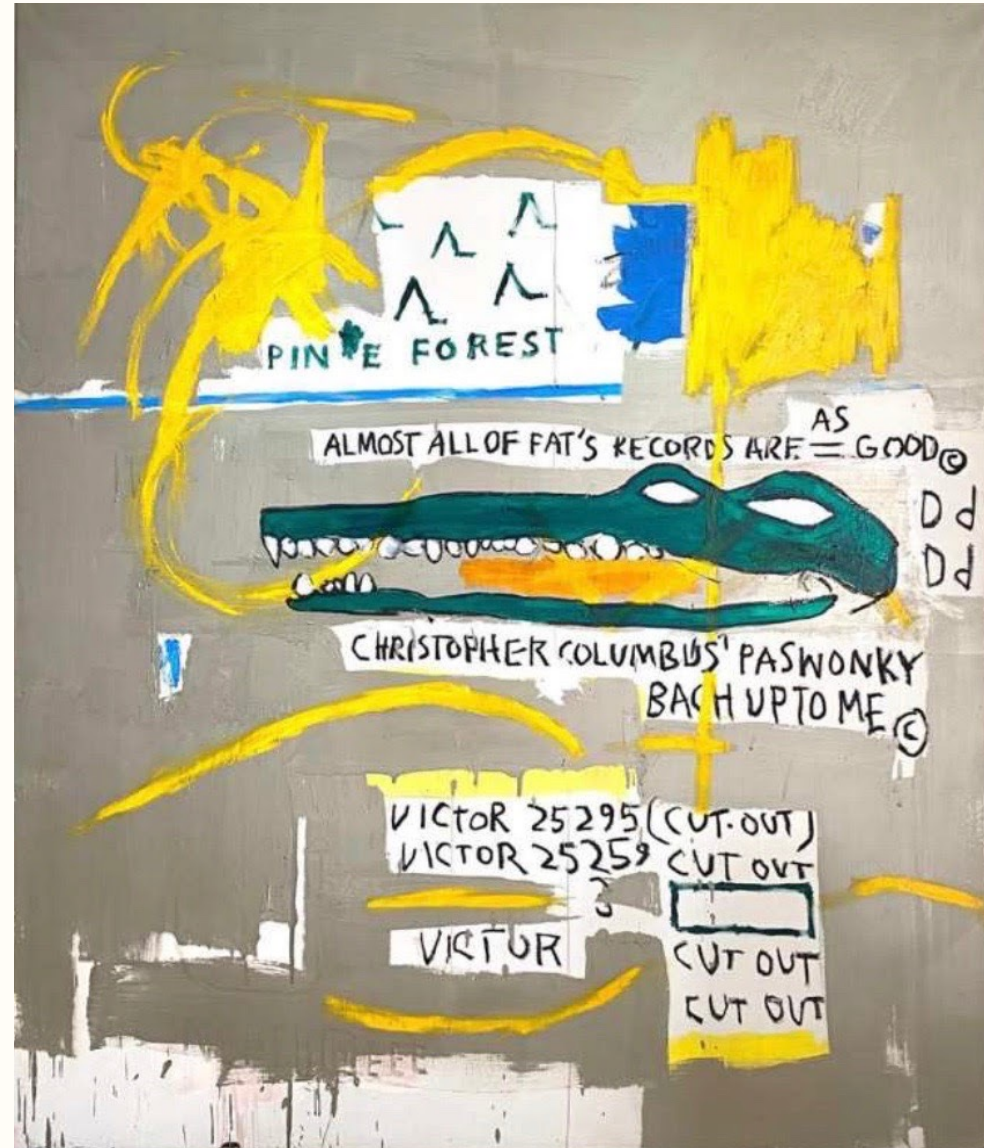 PIN E FOREST
AS
ALMOST ALL OF FAT'S RECORDS ARE = GOOD ©
D d
D d
CHRISTOPHER COLUMBUS' PASWONKY
BACH UPTO ME ©
VICTOR 25295 (CUT-OUT)
VICTOR 25259 CUT OUT
VICTUR
CUT OUT
CUT OUT